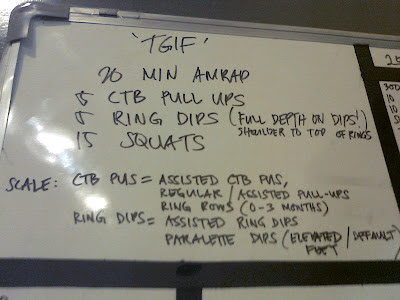 'TGIF'
20 MIN AMRAP
5 CTB PULL UPS
5 RING DIPS (FULL DEPTH ON DIPS!)
SHOULDER TO TOP OF RINGS
15 SQUATS
SCALE: CTB PUS = ASSISTED CTB PUS,
REGULAR / ASSISTED PULL-UPS
RING ROWS (0-3 MONTHS)
RING DIPS = ASSISTED RING DIPS
PARALETTE DIPS (ELEVATED / DEFAULT)
FEET
25
300
10
10